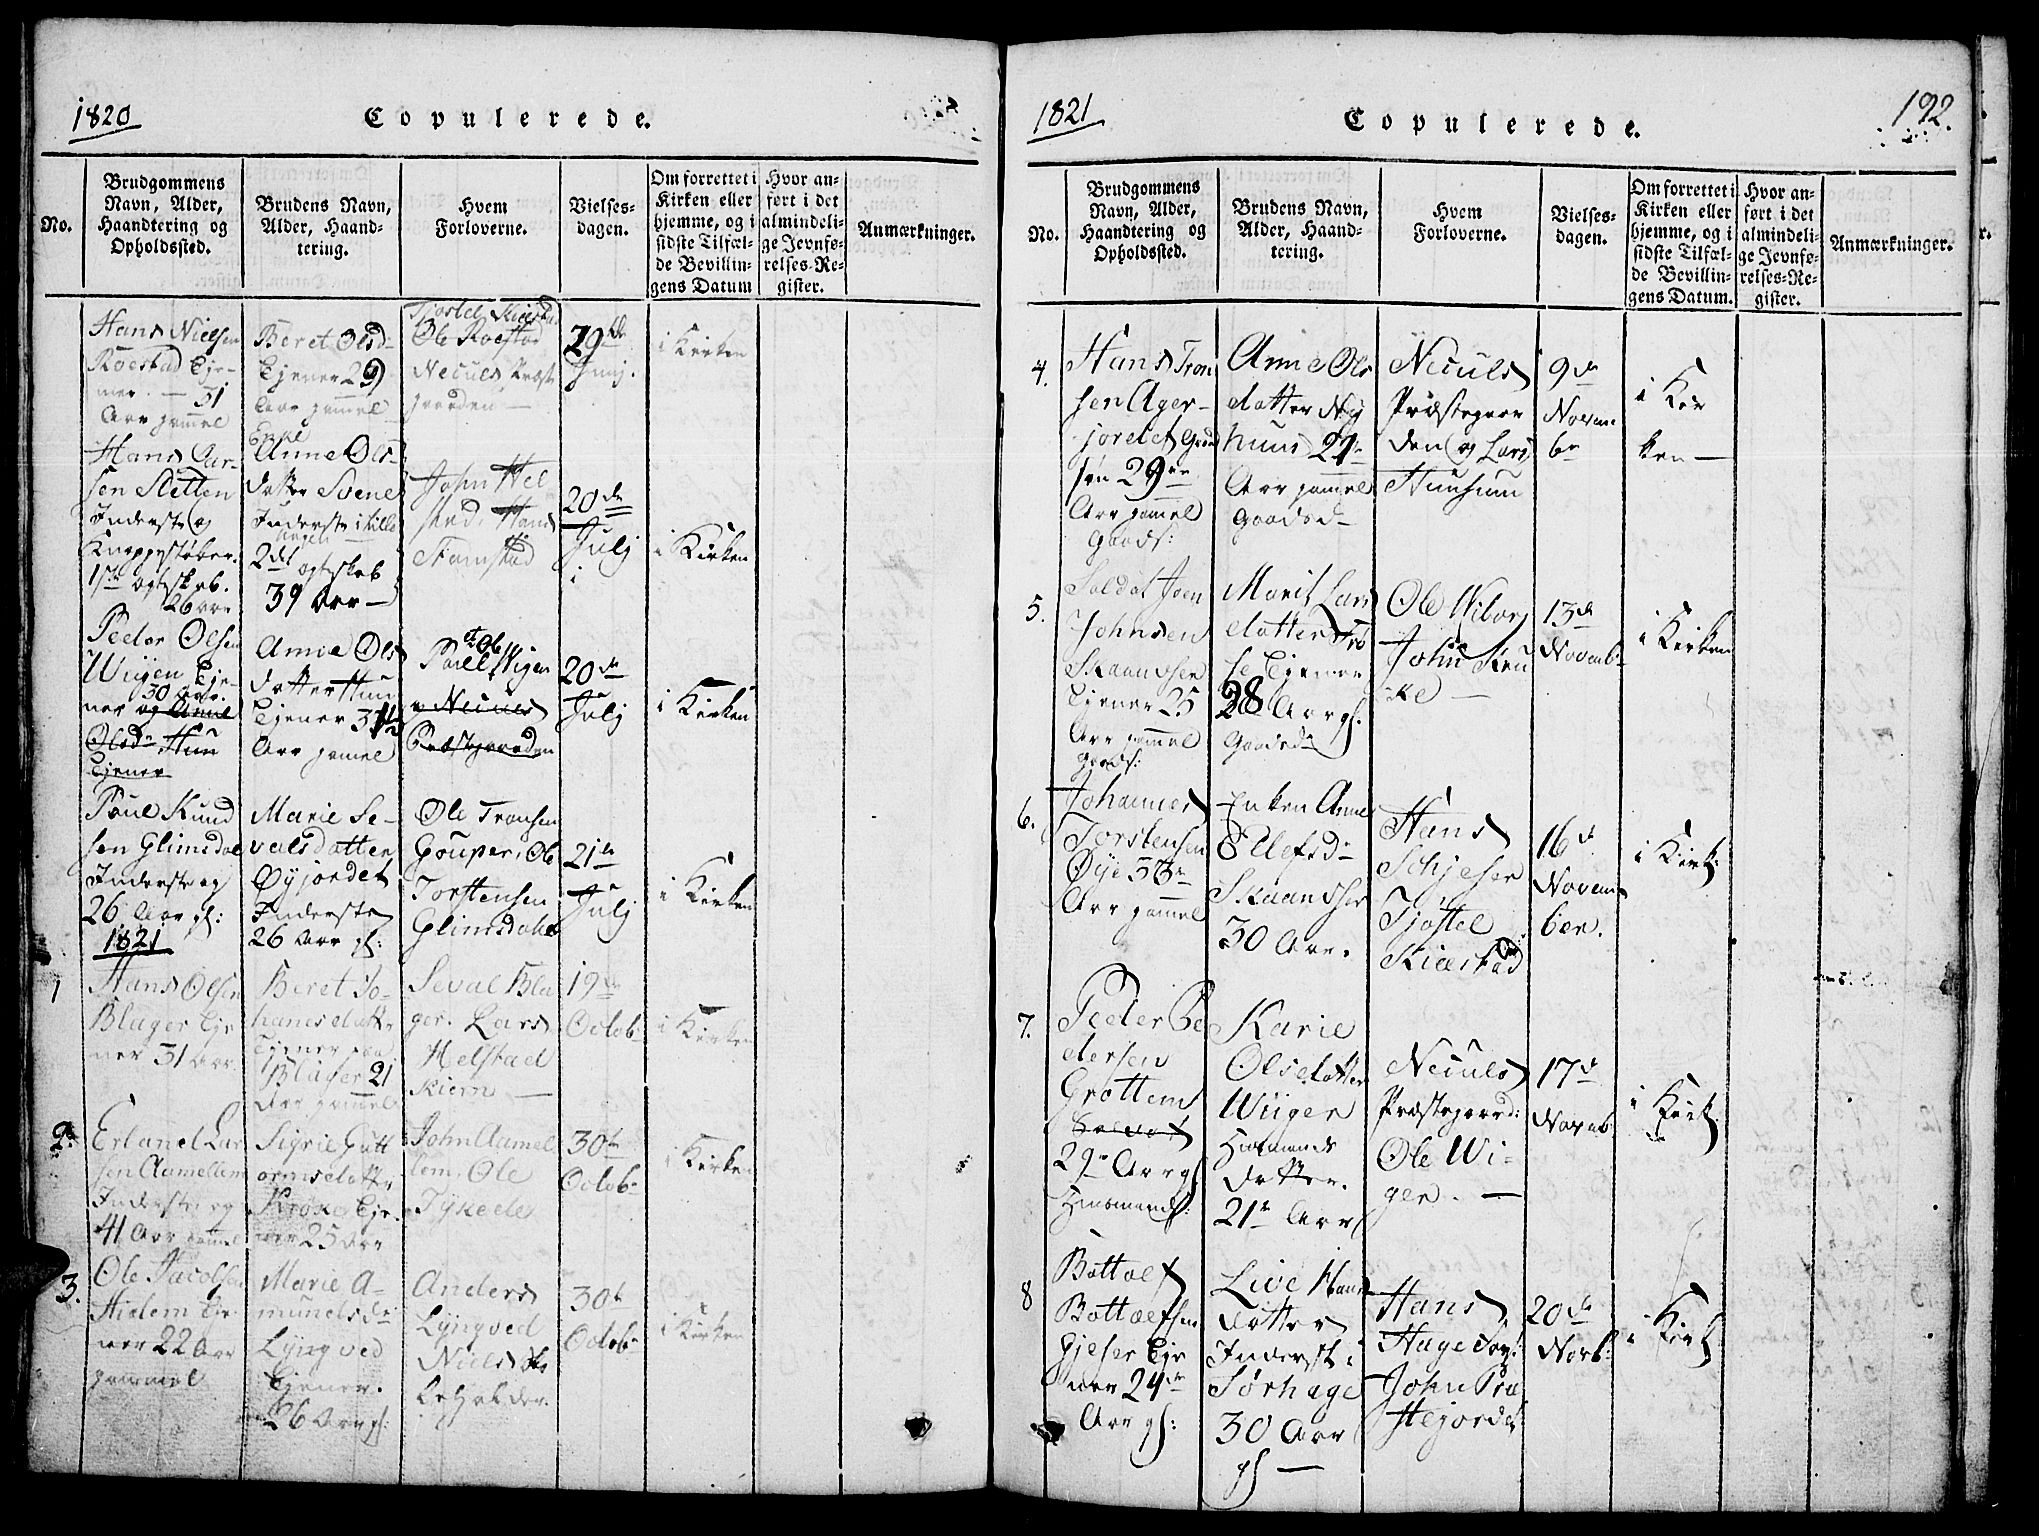 1820
Copulerede.
No.
Brudgommens
Navn, Alder,
Haandtering og
Opholdssted.
Brudens Navn,
Alder, Haand-
tering.
Hvem
Forloverne.
Vielses-
dagen.
Om forrettet i
Kirken eller
hjemme, og i
sidste Tilfæl-
de Bevillin-
gens Datum
Hvor an-
ført i det
almindeli-
ge Jevnfø-
relses-Re-
gister.
Anmærkninger.
Hans Nielsen
Roestad Tje-
ner. — 31
Aar gammel
Beret Olsd-
Tjener 29
Aar gammel
Enke
Tjostel Kiæstad
Ole Roestad
Neculs Præste
gaarden —
29de
Junij.
i Kirken
Hans Lar-
sen Sletten
Inderste og
Knappestøber.
1ste Egteskab.
26 Aar
Anne Ols-
datter Svene
Inderste i Lille
2det Egteskab
39 Aar —
John Hel
stad, Hans
Stamstad
20de
Julj
i Kirken
Peder Olsen
Wiigen Tje-
30 Aar.
ner og Anne
Olsd- Huu
Tjener
Anne Ols
datter Huu
Tjener 31te
Aar gamel
Poul Wigen
Neculs
Præstgaarden
20de
Julj
i Kirken
Poul Knud
sen Glimsdal
Inderste og
26 Aar gl:
Marie Se-
valsdatter
Øyjordet
Inderste
26 Aar gl:
Ole Tronsen
Gouper, Ole
Torstensen
Glimsdahl
21de
Julj
i Kirken
1821
1
Hans Olsen
Blager Tje
ner 31 Aar
Beret Jo-
hanesdatter
Tjener paa
Blager 21
Aar gammel
Seval Bla
ger. Lars
Helstad
kiern —
19de
Octob-
i Kirken
2.
Erland Lar
sen Aamellem
Inderste og
41 Aar gammel
Sigrie Gutt
ormsdatter
Kroke Tje-
ner 25 Aar
John Aamel
lem, Ole
Tykede
30te
Octob-
i Kirken
3.
Ole Jacobsen
Hielem Tje-
ner 22 Aar
gammel
Marie A-
mundsdr
Lyngved
Tjener.
26 Aar gl.
Anders
Lyngved
Niels
30te
Octob-
i Kirken
1821
Copulerede.
192.
No.
Brudgommens
Navn, Alder,
Haandtering og
Opholdssted.
Brudens Navn,
Alder, Haand-
tering.
Hvem
Forloverne.
Vielses-
dagen.
Om forrettet i
Kirken eller
hjemme, og i
sidste Tilfæl-
de Bevillin-
gens Datum.
Hvor an-
ført i det
almindeli-
ge Jevnfø-
relses-Re-
gister.
Anmærkninger.
4.
Hans Tron
sen Ager-
jordet Gaard
søn 29de
Aar gammel
Gaards:
Anne Ols
datter Ny
huus 21de
Aar gammel
Gaardsd-
Neculs
Præstegaar
den og Lars
Huusum
9de
Novem
br
i Kir
ken —
5.
Soldat Joen
Johnsen
Skaansser
Tjener 25
Aar gammel
Gaards:
Marit Lars
datter Frö
se Tjener
28 Aar gl.
Gaardsd-
Ole Wiborg
John Kru
ke —
13de
Novemb-
i Kirken
6.
Johannes
Torstensen
Øye 36te
Aar gammel
Enken Anne
Ollefsd-
Skaansser
30 Aar.
Hans
Schjeser
Tjostel
Kiæstad
16de
Novem
ber.
i Kirk:
7.
Peder Pe
dersen
Grottem
29de Aar gl
Huusmand:
Karie
Olsdatter
Wiiger
Huusmands
datter.
21de Aar
Neculs
Præstegaard:
Ole Wi-
ger. —
17de
Novemb
i Kirk
8
Bottolf
Bottolfsen
Gjeser Tje
ner 24de
Aar gl:
Live Hans
datter
Inderst i
Sørhage
30 Aar
gl —
Hans
Hage Søg:
John Præ
stejordet
20de
Novb-
i Kirk